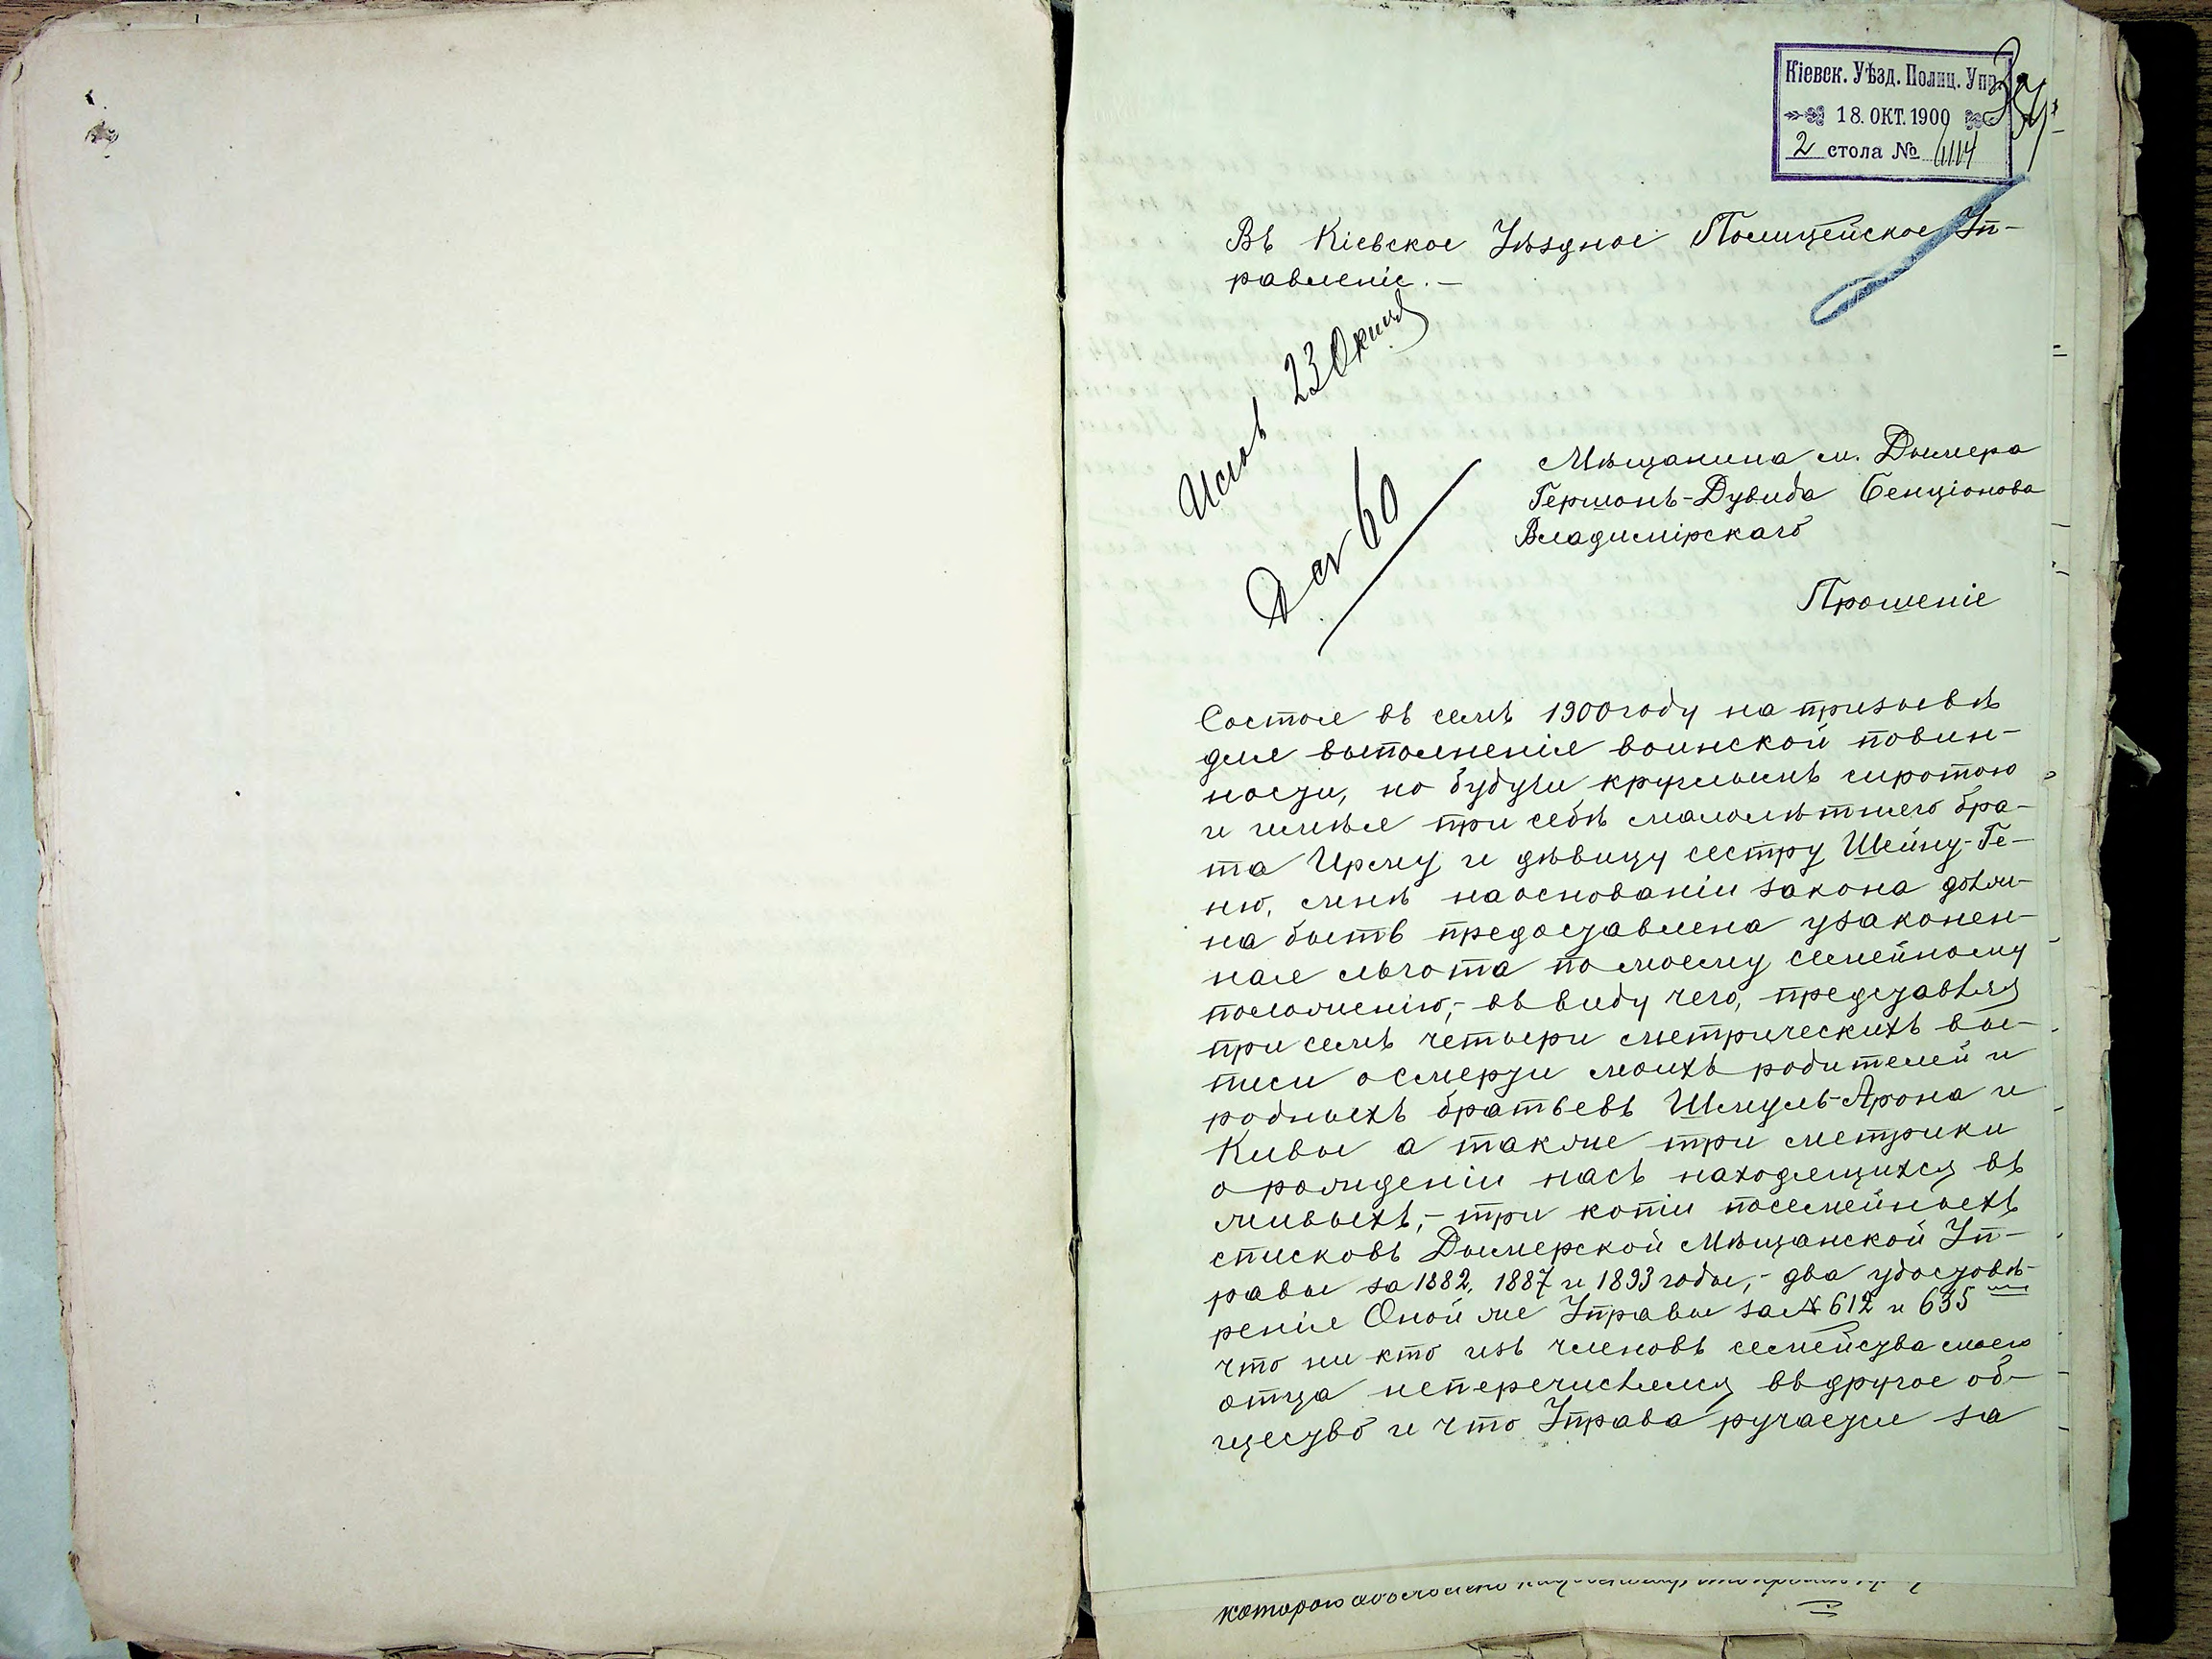 Кіевск. Уѣзд. Полиц. Упр.
18. ОКТ. 1900
2 стола №
Въ Кіевское Уѣздное Полицейское Уп-
равленіе.-
23 Окт
60
Мѣщанина м. Дымера
Гершонъ-Дувида Бенціонова
Владимірскаго
Прошеніе
Состоя въ семъ 1900 году на призывѣ
для выполненія воинской повин-
ности, но будучи круглымъ сиротою
и имѣя при себѣ малолѣтнего бра-
та Ирму и дѣвицу сестру Шейну-Ге-
ню, мнѣ на основаніи закона долж-
на быть предоставлена узаконен-
ная льгота по моему семейному
положенію,- въ виду чего, представляя
при семъ четыри метрическихъ вы-
писи о смерти моихъ родителей и
родныхъ братьевъ Шмуль-Арона и
Кивы а также три метрики
о рожденіи насъ находящихся въ
живыхъ,- три копіи посемейныхъ
списковъ Дымерской Мѣщанской Уп-
равы за 1882, 1887 и 1893 годы,- два удостовѣ-
ренія Оной же Управы за № 612 и 635
что ни кто изъ членовъ семейства моего
отца неперечислялся въ другое об-
щество и что Управа ручается за
которою